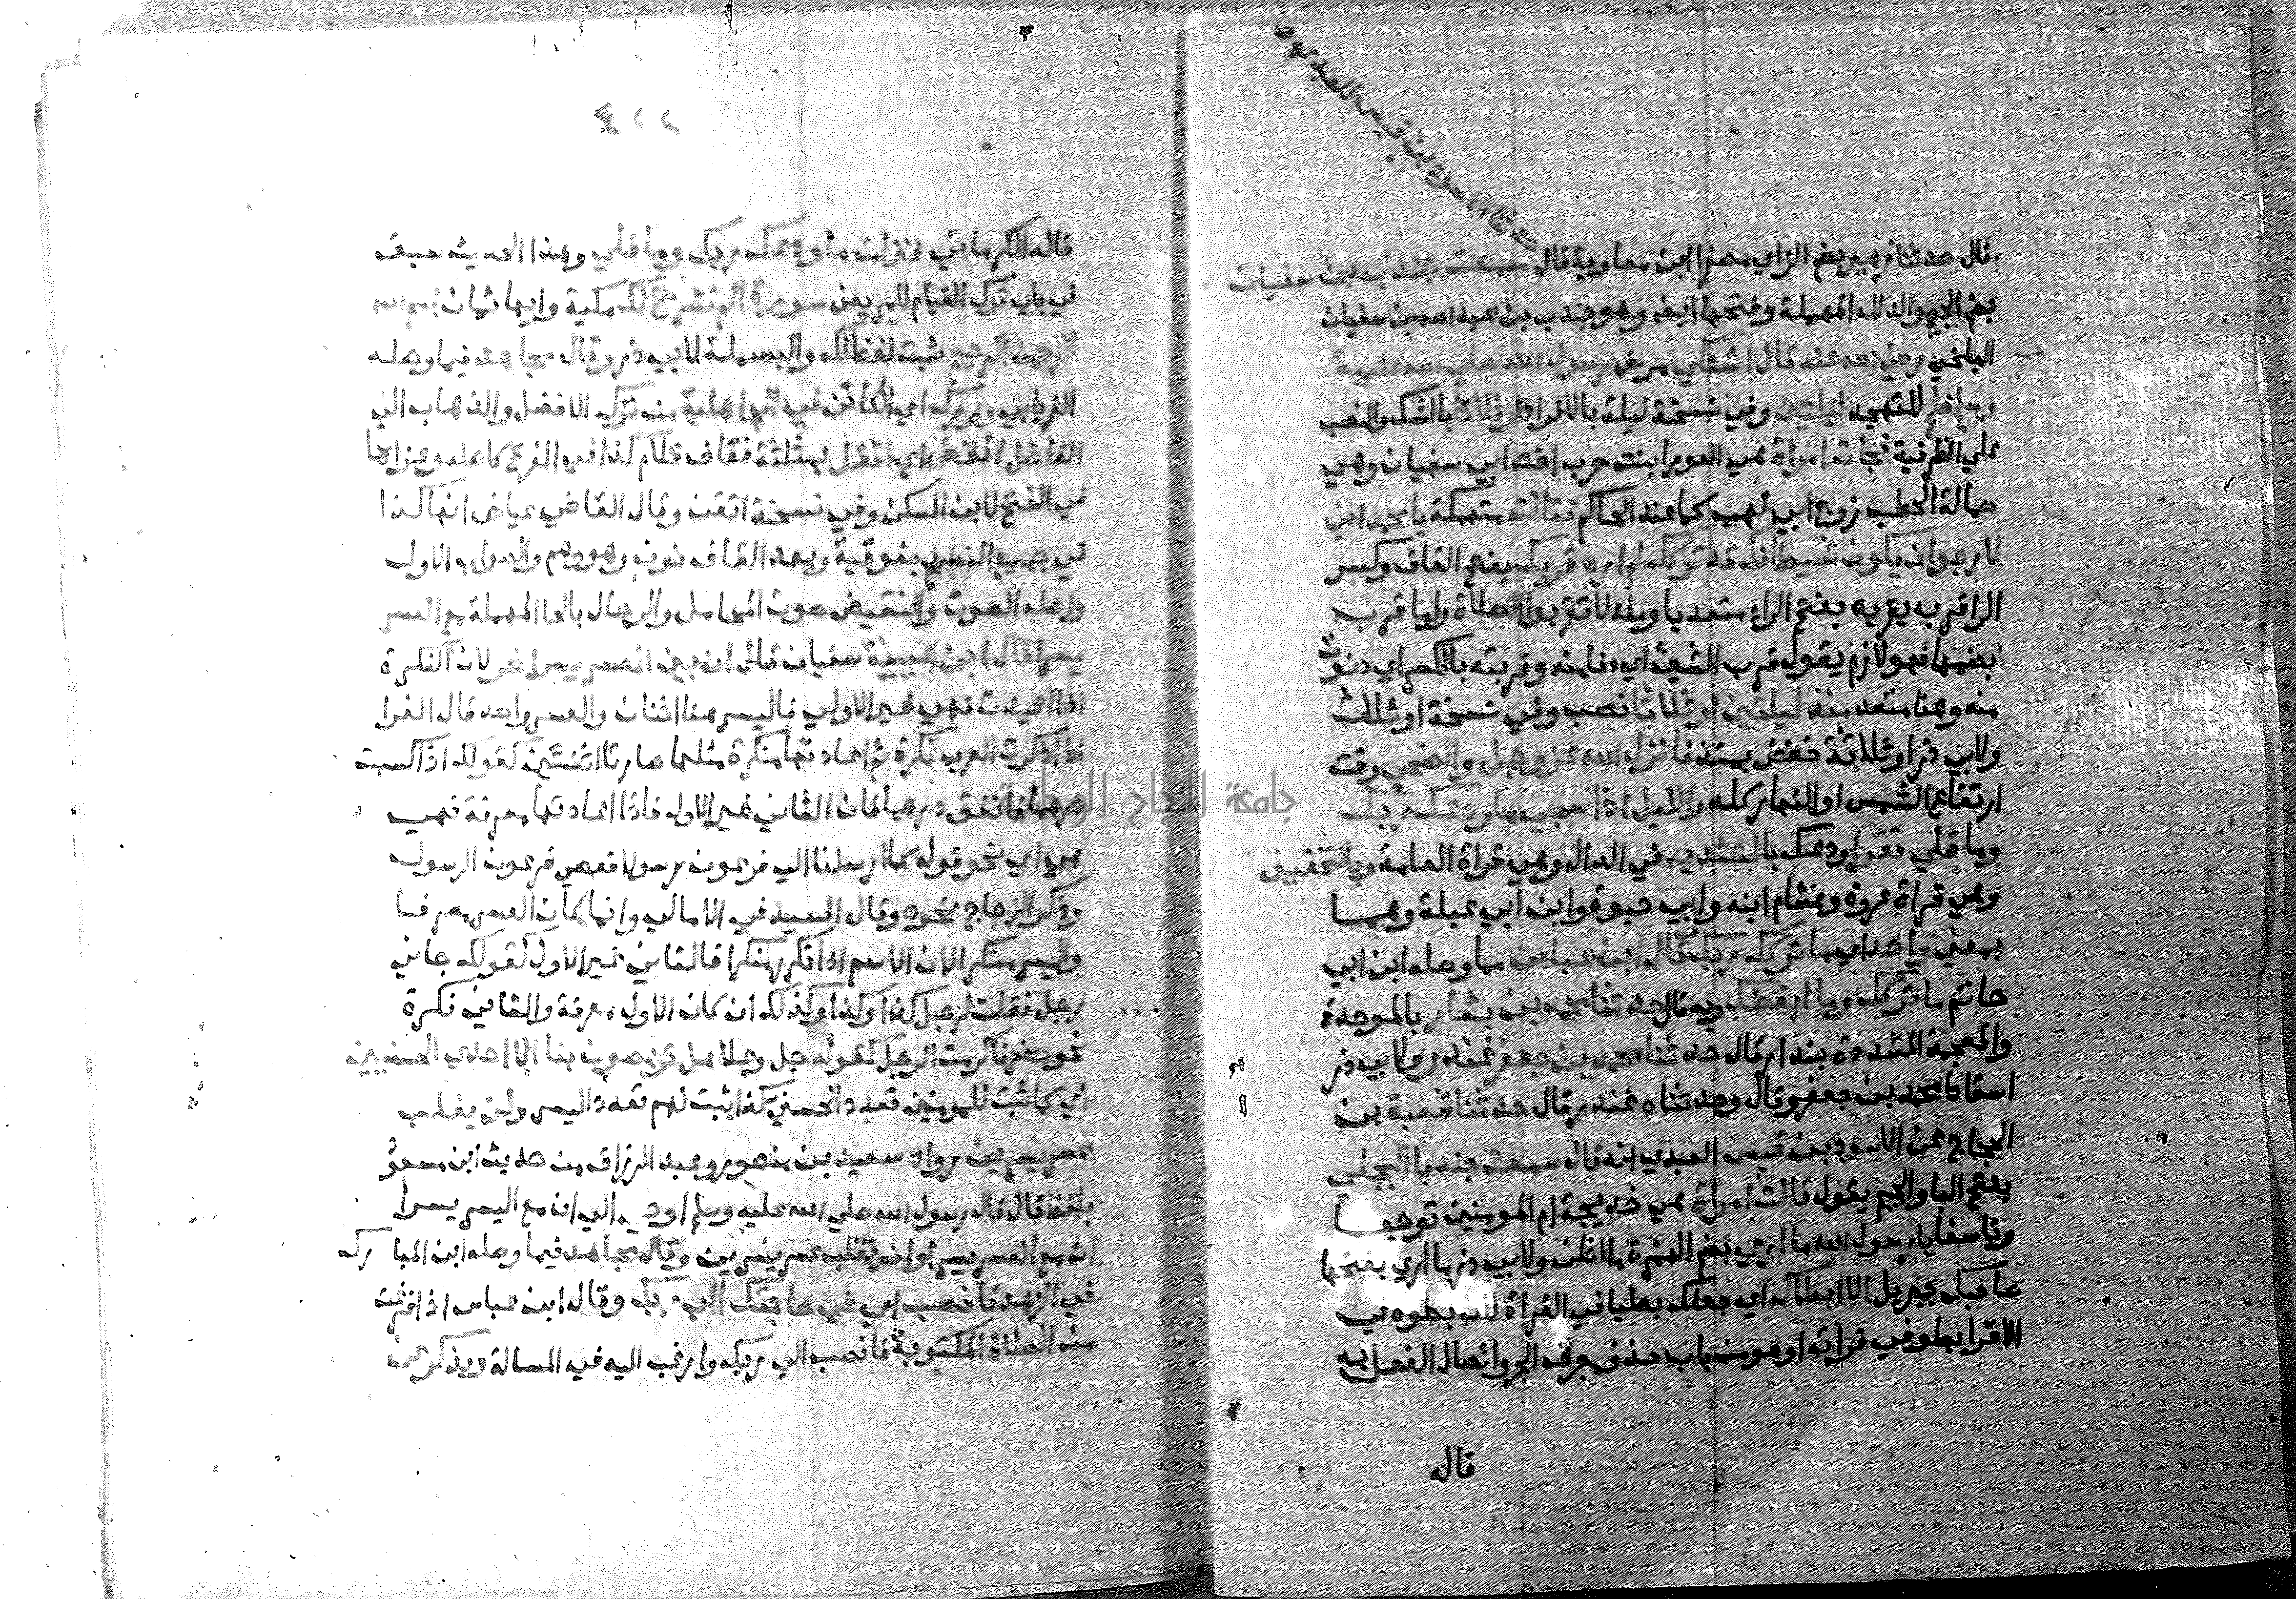 حدثنا الاسود بن قيس العبدي
قال حدثنا زهير بضم الزاي مصغرا ابن معاوية قال سمعت جندب بن سفيان
بضم الجيم والدال المهملة وفتحها ايضا وهو جندب بن عبد الله بن سفيان
رضي الله عنه قال اشتكي مرض رسول الله صلي الله عليه
وسلم فلم للتهجد ليلتين وفي نسخة ليلة بالافراد او ثلاثا بالشك والنصب
علي الظرفية فجات امراة هي العورا بنت حرب اخت ابي سفيان وهي
حمالة الحطب زوج ابي لهب كما عند الحاكم فقالت متهكمة يا محمد اني
لارجو ان يكون شيطانك قد تركك لم اره قربك بفتح القاف وكسر
الرا قربه يقربه بفتح الراء متعديا ومنه لا تقربوا الصلاة واما قرب
بضمها فهو لازم يقول قرب الشي اي دنا منه وقربته بالكسر اي دنوت
منه وهنا متعد منذ ليلتين او ثلاثا نصب وفي نسخة او ثلاث
ولابي ذر او ثلاثة خفض بمنذ فانزل الله عز وجل والضحي وقت
ارتفاع الشمس او النهار كله والليل اذا سجي ما ودعك ربك
وما قلي تقرا ودعك بالتشديد في الدال وهي قراة العامة وبالتخفيف
وهي قراة عروة وهشام ابنه وابي حيوة وابن ابي عبلة وهما
بمعني واحد اي ما تركك ربك قال ابن عباس مما وصله ابن ابي
حاتم ما تركك وما ابغضك وبه قال حدثنا محمد بن بشار بالموحدة
والمعجمة المشددة بندار قال حدثنا محمد بن جعفر غندر ولابي ذر
اسقاط محمد بن جعفر وقال وحدثناه غندر قال حدثنا شعبة بن
الحجاج عن الاسود بن قيس العبدي انه قال سمعت جندبا البجلي
بفتح البا والجيم يقول قالت امراة هي خديجة ام المومنين توجعا
وتاسفا يا رسول الله ما اري بضم الهمزة ما اظن ولابي ذر ما اري بفتحها
صاحبك جبريل الا ابطاك اي جعلك بطيا في القراة لان بطوه في
الاقرا بطو في قراته او هو من باب حذف حرف الجر وايصال الفعل به
قاله
قاله الكرماني فنزلت ما ودعك ربك وما قلي وهذا الحديث سبق
في باب ترك القيام للمريض سورة الم نشرح لك مكية وايها ثمان بسم الله
الرحمن الرحيم ثبت لفظ لك والبسملة لابي ذر وقال مجاهد فيما وصله
الفريابي وزرك اي الكائن في الجاهلية من ترك الافضل والذهاب الي
الفاضل انقض اي اثقل بمثلثة فقاف فلام كذا في الفرع كاصله وعزاها
في الفتح لابن السكن وفي نسخة اتقن وقال القاضي عياض انها كذا
في جميع النسخ بفوقية وبعد القاف نون وهو وهم والصواب الاول
واصله الصوت والنقيض صوت المحامل والرحال بالحا المهملة مع العسر
يسرا قال ابن عيينة سفيان اي ان مع العسر يسرا اخر لان النكرة
اذا اعيدت فهي غير الاولي فاليسر هنا اثنان والعسر واحد قال الفرا
اذا ذكرت العرب نكرة ثم اعادتها منكرة مثلها صارتا اثنتين كقولك اذا كسبت
درهما فانفق درهما فان الثاني غير الاول فاذا اعادتها معرفة فهي
هي اي نحو قوله كما ارسلنا الي فرعون رسولا فعصي فرعون الرسول
وذكر الزجاج نحوه وقال السيد في الامالي وانما كان العسر معرفا
واليسر منكرا لان الاسم اذا تكرر منكرا فالثاني غير الاول كقولك جاني
رجل فقلت لرجل كذا وكذا وكذلك ان كان الاول معرفة والثاني نكرة
نحو حضر فاكرمت الرجل كقوله جل وعلا هل تربصون بنا الا احدي الحسنيين
اي كما ثبت للمومنين تعدد الحسني كذا ثبت لهم تعدد اليسر ولن يغلب
عسر يسرين رواه سعيد بن منصور وعبد الرزاق من حديث ابن مسعود
بلفظ قال قال رسول الله صلي الله عليه وسلم اوحي الي ان مع اليسر يسرا
ان مع العسر يسرا ولن يغلب عسر يسرين وقال مجاهد فيما وصله ابن المبارك
في الزهد فانصب اي في حاجتك الي ربك وقال ابن عباس اذا فرغت
من الصلاة المكتوبة فانصب الي ربك وارغب اليه في المسالة ويذكر عن
جامعة النجاح الوطنية